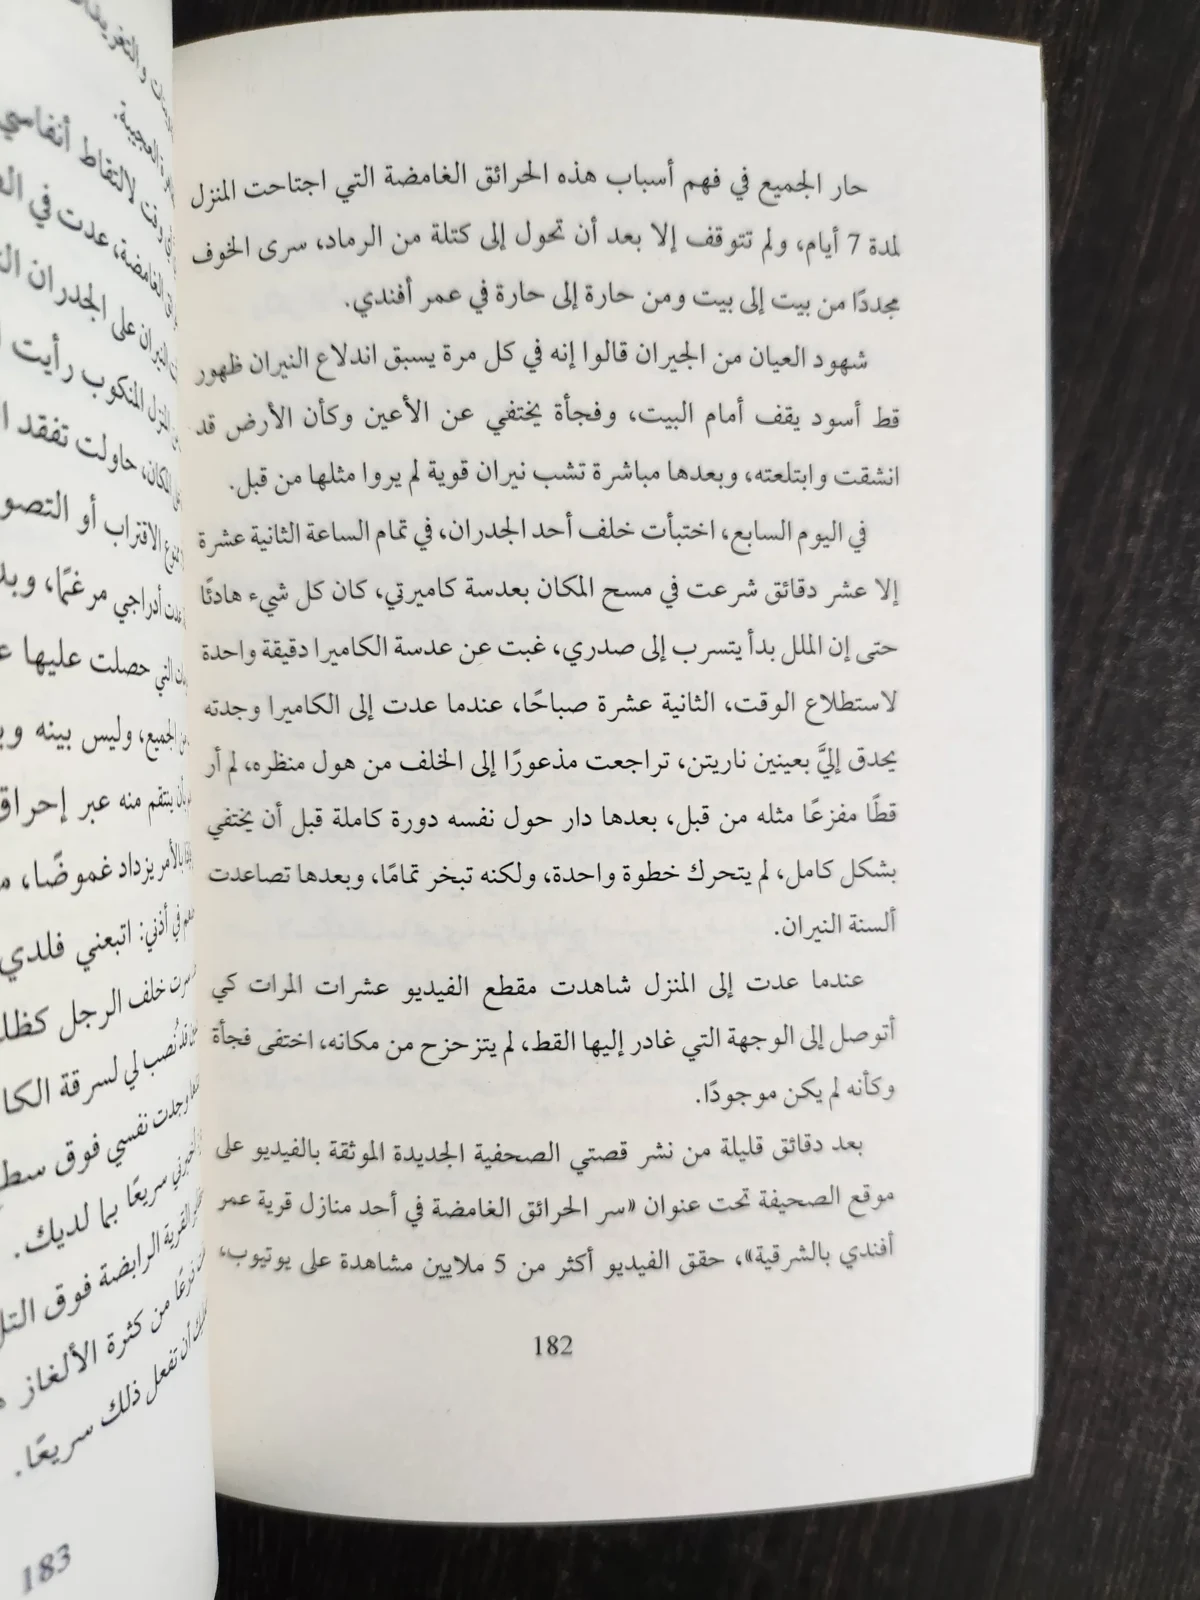 حار الجميع في فهم أسباب هذه الحرائق الغامضة التي اجتاحت المنزل
لمدة 7 أيام، ولم تتوقف إلا بعد أن تحول إلى كتلة من الرماد، سرى الخوف
مجددًا من بيت إلى بيت ومن حارة إلى حارة في عمر أفندي.
شهود العيان من الجيران قالوا إنه في كل مرة يسبق اندلاع النيران ظهور
قط أسود يقف أمام البيت، وفجأة يختفي عن الأعين وكأن الأرض قد
انشقت وابتلعته، وبعدها مباشرة تشب نيران قوية لم يروا مثلها من قبل.
في اليوم السابع، اختبأت خلف أحد الجدران، في تمام الساعة الثانية عشرة
إلا عشر دقائق شرعت في مسح المكان بعدسة كاميرتي، كان كل شيء هادئًا
حتى إن الملل بدأ يتسرب إلى صدري، غبت عن عدسة الكاميرا دقيقة واحدة
لاستطلاع الوقت، الثانية عشرة صباحًا، عندما عدت إلى الكاميرا وجدته
يحدق إليَّ بعينين ناريتن، تراجعت مذعورًا إلى الخلف من هول منظره، لم أر
قطًا مفزعًا مثله من قبل، بعدها دار حول نفسه دورة كاملة قبل أن يختفي
بشكل كامل، لم يتحرك خطوة واحدة، ولكنه تبخر تمامًا، وبعدها تصاعدت
ألسنة النيران.
عندما عدت إلى المنزل شاهدت مقطع الفيديو عشرات المرات كي
أتوصل إلى الوجهة التي غادر إليها القط، لم يتزحزح من مكانه، اختفى فجأة
وكأنه لم يكن موجودًا.
بعد دقائق قليلة من نشر قصتي الصحفية الجديدة الموثقة بالفيديو على
موقع الصحيفة تحت عنوان «سر الحرائق الغامضة في أحد منازل قرية عمر
أفندي بالشرقية»، حقق الفيديو أكثر من 5 ملايين مشاهدة على يوتيوب،
182
والتغريدات
العجيبة.
وقت لالتقاط أنفاسي
الغامضة، عدت في
النيران على الجدران
المنزل المنكوب رأيت
المكان، حاولت تفقد
الاقتراب أو
عدت أدراجي مرغمًا،
التي حصلت عليها
الجميع، وليس بينه
بأن ينتقم منه عبر إحراق
بالأمر يزداد غموضًا،
في أذني: اتبعني فلدي
سرت خلف الرجل
نُصب لي لسرقة
وجدت نفسي فوق
سريعًا بما لديك.
القرية الرابضة فوق
من كثرة الألغاز
أن تفعل ذلك سريعًا.
183